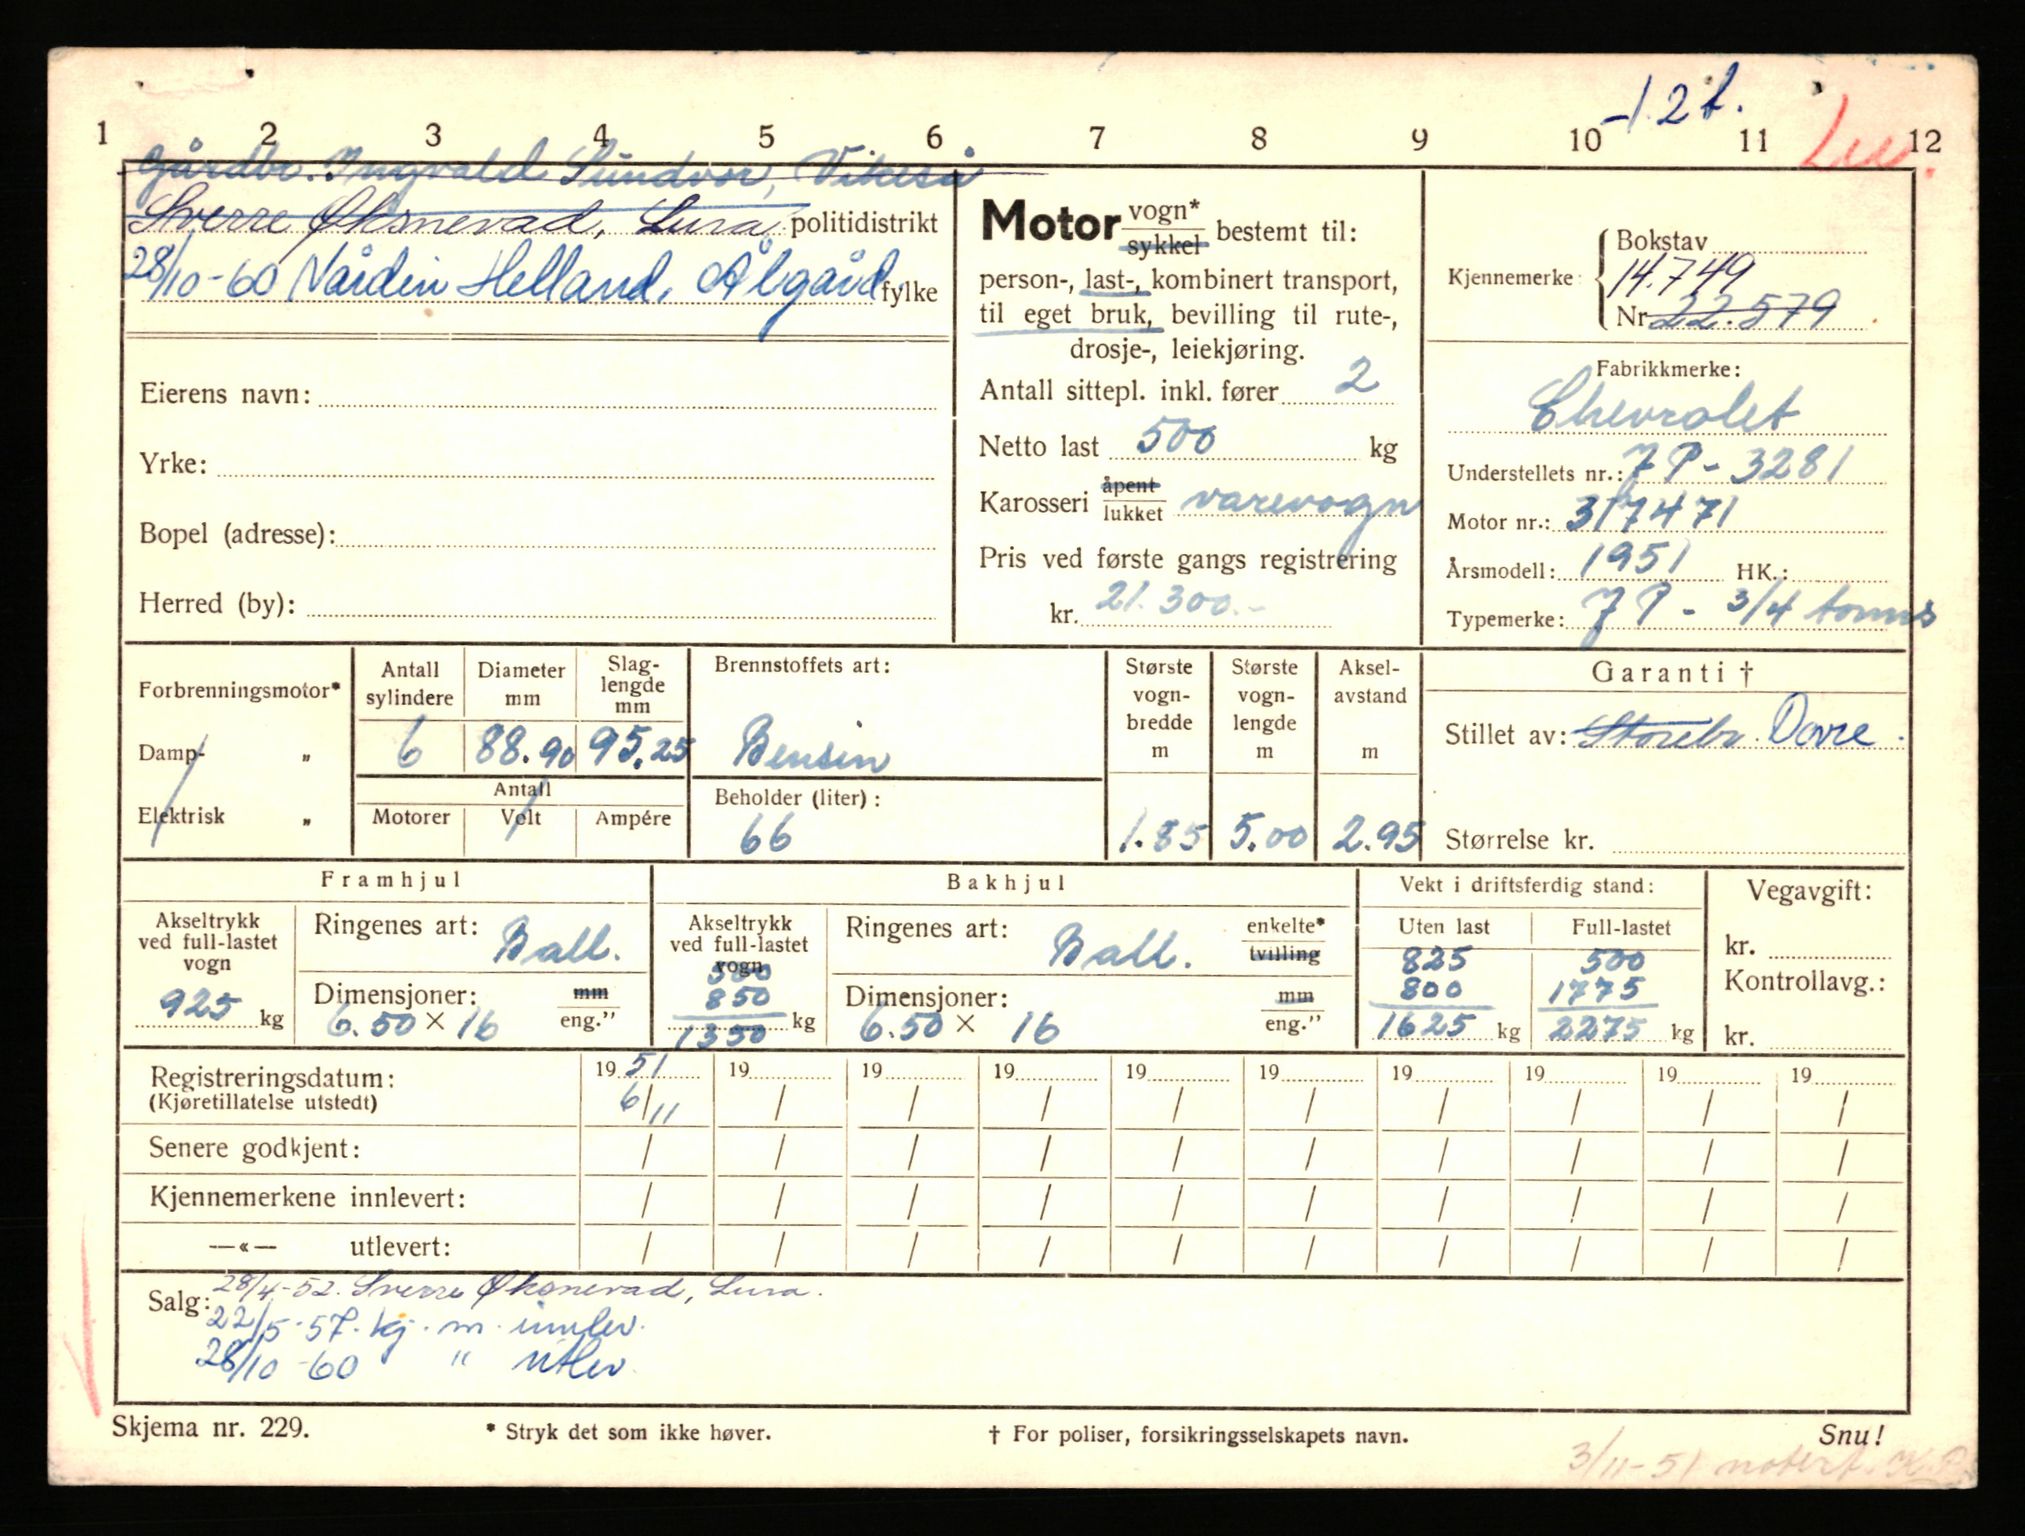 -1.2t.
1 2 3 4 5 6 7 8 9 10 11 12
Gårdbr. Ingvald Sundvor, Vikeså
Sverre Øksnevad, Lura politidistrikt
28/10-60 Nårdin Helland, Ålgård fylke
Eierens navn:
Yrke:
Bopel (adresse):
Herred (by):
Motor vogn* sykkel bestemt til:
person-, last-, kombinert transport,
til eget bruk, bevilling til rute-,
drosje-, leiekjøring.
Antall sittepl. inkl. fører 2
Netto last 500 kg
Karosseri åpent lukket varevogn
Pris ved første gangs registrering
kr. 21.300.-
Kjennemerke Bokstav
14.749
Nr 22.579
Fabrikkmerke:
Chevrolet
Understellets nr.: 7P-3281
Motor nr.: 317471
Årsmodell: 1951 HK.:
Typemerke: 7P - 3/4 tonns
Forbrenningsmotor*
Damp- „
Elektrisk „
Antall sylindere
6
Diameter mm
88.90
Slag-lengde mm
95.25
Antall
Motorer Volt Ampére
Brennstoffets art:
Bensin
Beholder (liter):
66
Største vogn-bredde m
1.85
Største vogn-lengde m
5.00
Aksel-avstand m
2.95
Garanti †
Stillet av: Storebr. Dovre.
Størrelse kr.
Framhjul
Akseltrykk ved full-lastet vogn
925 kg
Ringenes art: Ball.
Dimensjoner: mm eng."
6.50 × 16
Bakhjul
Akseltrykk ved full-lastet vogn
500
850
1350 kg
Ringenes art: Ball. enkelte* tvilling
Dimensjoner: mm eng."
6.50 × 16
Vekt i driftsferdig stand:
Uten last Full-lastet
825 500
800 1775
1625 kg 2275 kg
Vegavgift:
kr.
Kontrollavg.:
kr.
Registreringsdatum: 1951 19 19 19 19 19 19 19 19 19
(Kjøretillatelse utstedt) 6/11 / / / / / / / / /
Senere godkjent: / / / / / / / / / /
Kjennemerkene innlevert: / / / / / / / / / /
—«— utlevert: / / / / / / / / / /
Salg: 28/4-52. Sverre Øksnevad, Lura.
22/5-57. kj. m. innlev.
28/10-60 " utlev.
Skjema nr. 229.
* Stryk det som ikke høver.
† For poliser, forsikringsselskapets navn.
Snu!
3/11-51 notert.